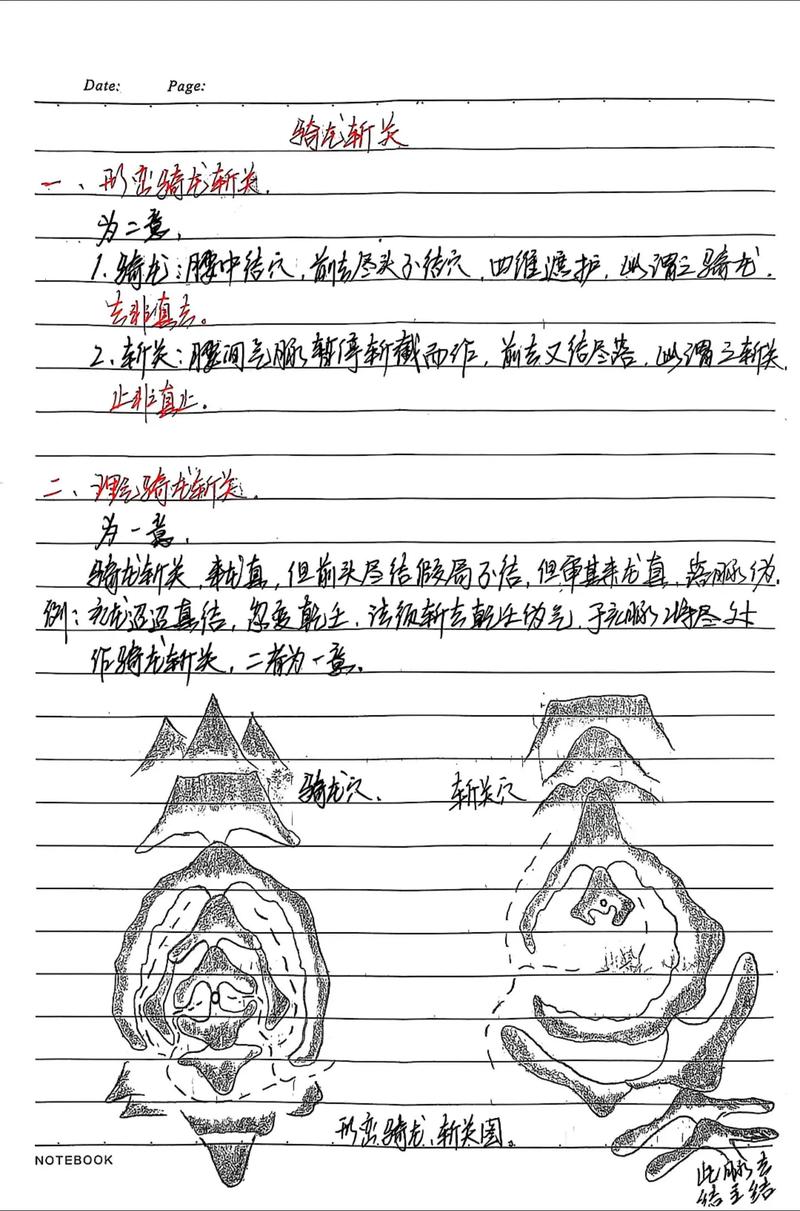 Date: Page:
骑龙斩关
一、形峦骑龙斩关.
为二意,
1.骑龙:腰中结穴,前去尽头不结穴,四维遮护,此谓之骑龙.
去非真去。
2.斩关:腰间气脉暂停斩截而作,前去又结尽落,此谓之斩关.
止非真止.
二、理气骑龙斩关.
为一意,
骑龙斩关,来龙真,但前头尽结假局不结,但审其来龙真,落脉伪.
例:亥龙迢迢真结,忽变乾壬,法须斩去乾壬伪气,于亥脉将尽处
作骑龙斩关,二者为一意。
骑龙穴. 斩关穴
形峦骑龙、斩关图。
NOTEBOOK
此脉去
结主结